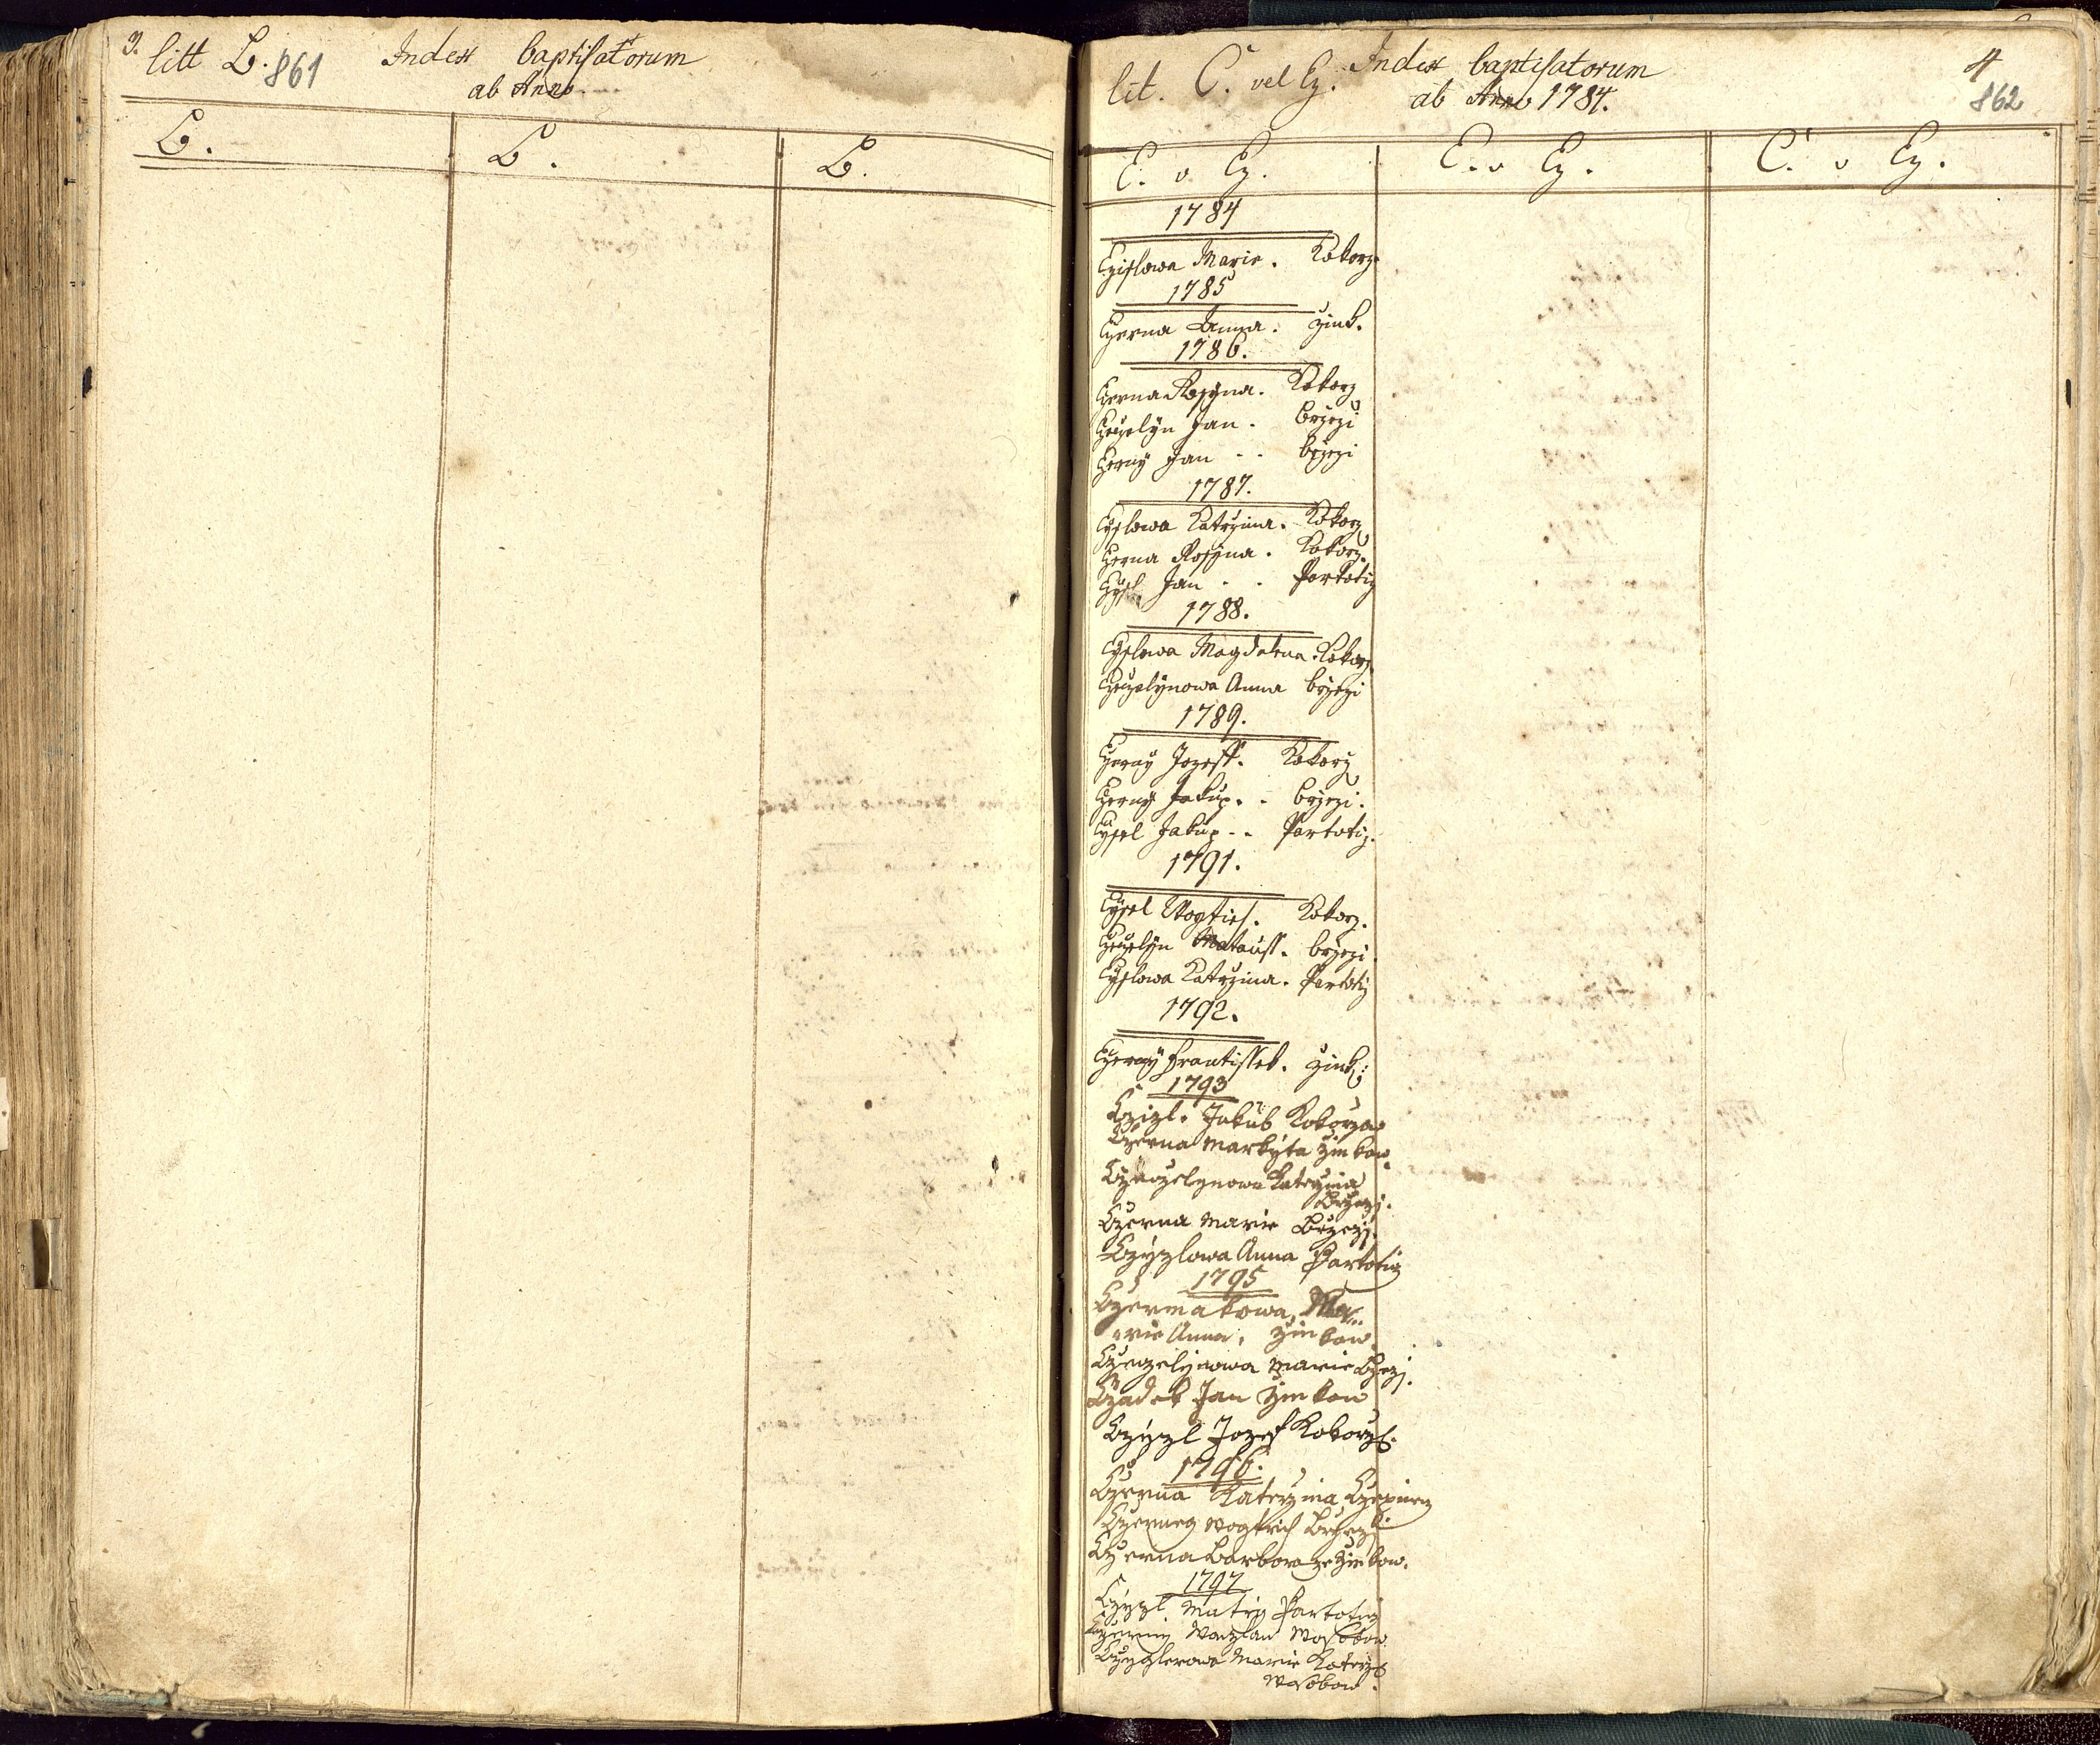 3.
litt B. 861 Index baptisatorum
ab Anno
B. B. B.
lit. C. vel Cz. Index baptisatorum
ab Anno 1784.
4
862
C. v Cz. C. v Cz. C. v Cz.
1784
Czislowa Marie. Kokorz.
1785
Czerna Anna. Zink.
1786.
Czerna Rosyna. Kokorz
Czeczelyn Jan. Brzezi
Czerny Jan - - brzezi
1787.
Czyslowa Katrzina. Kokorz
Czerna Rosyna. Kokorz.
Czysl Jan - - Partotiz
1788.
Czyslowa Magdalena Kokorz.
Czeczelynowa Anna brzezi
1789.
Czerny Jozeff. Kokorz
Czerny Jakup. - brzezi.
Czysel Jakup - - Partotiz.
1791.
Czysel Wogtiech. Kokorz.
Czeczelyn Matauss. brzezi.
Czyslowa Katrzina. Partotiz
1792.
Czerny Frantissek. Zink:
1793
Czizl. Jakub Kokorza
Czerna Markyta Zinkow.
Czeczelynowa Katerzina
Brzezj.
Czerna Marie Brzezj.
Czyzlowa Anna Partotiz
1795
Czermakowa, Ma
rie Anna, Zinkow.
Czeczelynowa Marie Brzezj.
Czadek Jan Zinkow
Czyzl Jozef Kokorz.
1796.
Czerna Katerzina
Czerney Wogtiech Brzezi
Czerna Barbora ze Zinkow.
1797
Czyzl Matieg Partotiz
Czerny Waczlaw Wosobow
Marie
Wosobow.